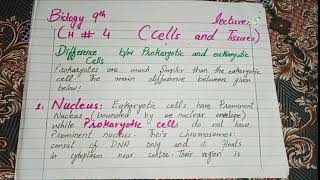 Biology 9th lecture: 5
CH # 4 (Cells and Tissues)
Difference b/w Prokaryotic and eukaryotic
Cells
Prokaryotes are much simpler than the eukaryotic
cell. The main difference between given
below:
1. Nucleus: Eukaryotic cells have Prominent
Nucleus (bounded by nuclear envelope)
while Prokaryotic cells do not have
Prominent nucleus. Their chromosomes:
consist of DNA only and it floats
in cytoplasm near centre. Their region is